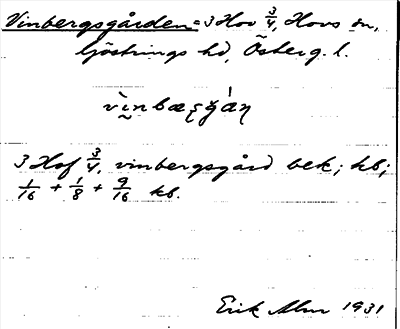 Vinbergsgården = 3 Hov 3/4, Hovs sn,
Göstrings hd, Österg. l.
vìnbæṣgáṇ
3 Hof 3/4, vinbergsgård bek; kb;
1/16 + 1/8 + 9/16 kb.
Erik Alm 1931